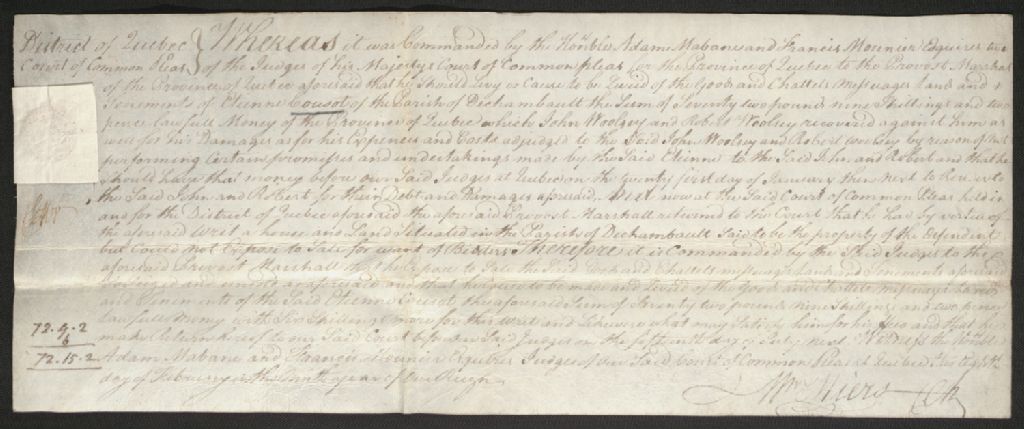 District of Quebec } Whereas it was Commanded by the Honble Adam Mabane and Francis Mounier Esquires two
Court of Common Pleas } of the Judges of his Majestys Court of Common pleas for the Province of Quebec to the Provost Marshal
of the Province of Quebec aforesaid that he Should levy or Cause to be Levied of the Goods and Chattels Messuages Land and
Tenements of Etienne Cousot of the Parish of Dechambault the Sum of Seventy two pounds nine Shillings and two
pence lawfull Money of the Province of Quebec which John Woolsey and Robert Woolsey recovered against him as
well for his Damages as for his Expences and Costs adjudged to the Said John Woolsey and Robert Woolsey by reason of not
performing Certain promises and undertakings made by the Said Etienne to the Said John and Robert and that he
should have that money before our Said Judges at Quebec on the twenty first day of January then Next to Render to
the Said John and Robert for their Debt and Damages aforesaid. And now at the Said Court of Common Pleas held in
and for the District of Quebec aforesaid the aforesaid Provost Marshall returned to the Court that he had by virtue of
the aforesaid Writ a house and Land Situated in the Parish of Dechambault Said to be the property of the Defendent
but Could not Expose to Sale for want of Bidders Therefore it is Commanded by the Said Judges to the
aforesaid Provost Marshall that he Expose to Sale the Said Goods and Chattels messuage Land and Tenements aforesaid
so Seized and unsold as aforesaid and that he cause to be made and Levied of the Goods and Chattels Messuages Lands
and Tenements of the Said Etienne Cousot the aforesaid Sum of Seventy two pounds Nine Shillings and two pence
Lawfull Money with Six Shillings more for this Writ and Likewise what may Satisfy him for his Fees and that he
make Return hereof to our Said Court before our Said Judges on the fifteenth day of July next Witness the Honble
Adam Mabane and Francis Mounier Esquires Judges of our Said Court of Common Pleas at Quebec the eighth
day of February in the year of Our Reign
72.9.2
6
72.15.2